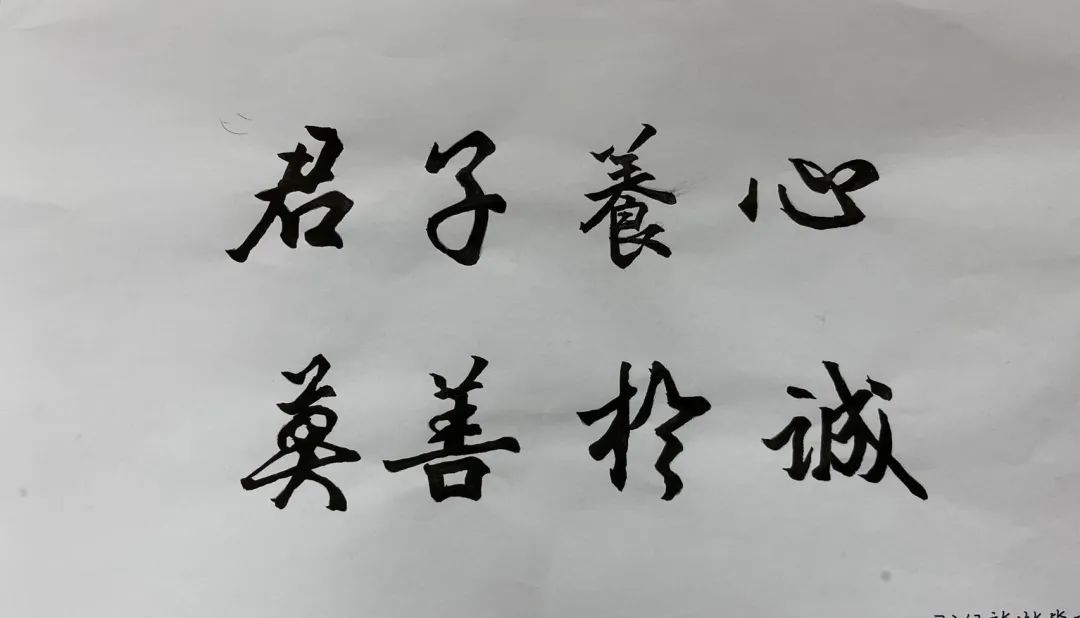 君子養心
莫善於誠